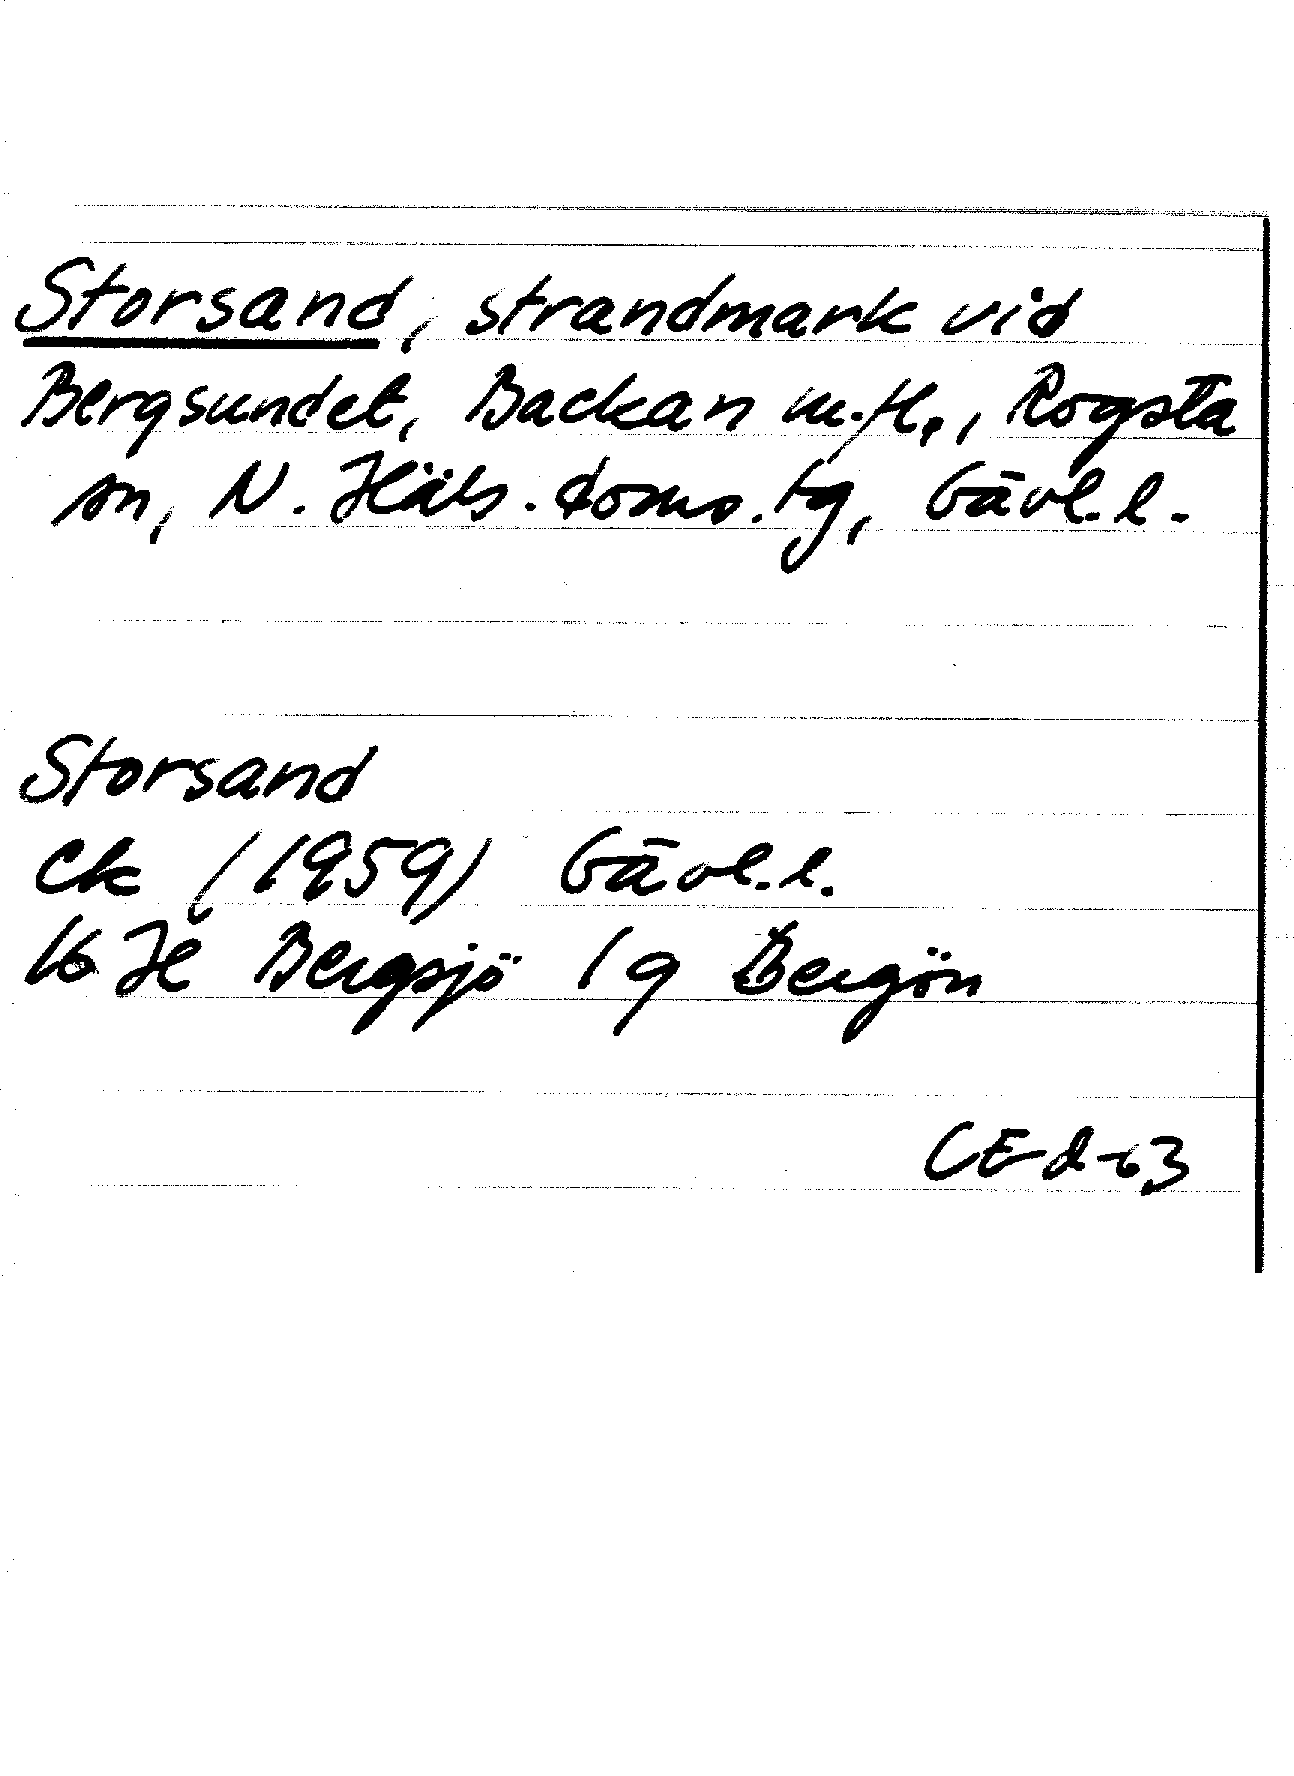 Storsand, strandmark vid
Bergsundet, Backan m.fl., Rogsta
sn, N. Häls. doms. tg, Gävl. l.
Storsand
Ek (1959) Gävl. l.
16 H Bergsjö 1 g Bergön
CE d-63